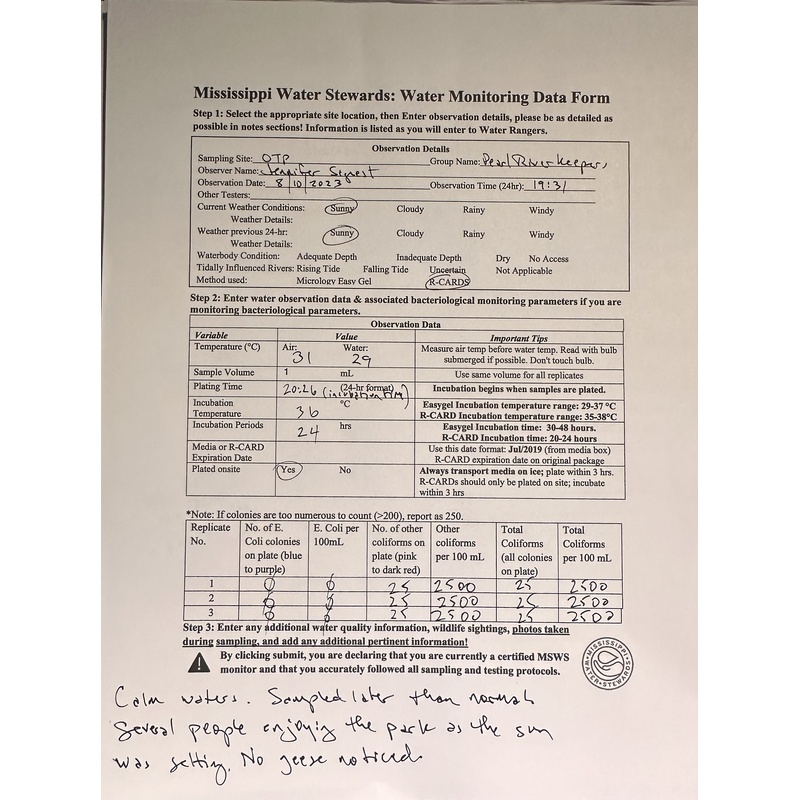 Mississippi Water Stewards: Water Monitoring Data Form
Step 1: Select the appropriate site location, then Enter observation details, please be as detailed as
possible in notes sections! Information is listed as you will enter to Water Rangers.
Observation Details
Sampling Site: OTP Group Name: Pearl Riverkeepers
Observer Name: Jennifer
Observation Date: 8/10/2023 Observation Time (24hr): 19:31
Other Testers:
Current Weather Conditions: Sunny Cloudy Rainy Windy
Weather Details:
Weather previous 24-hr: Sunny Cloudy Rainy Windy
Weather Details:
Waterbody Condition: Adequate Depth Inadequate Depth Dry No Access
Tidally Influenced Rivers: Rising Tide Falling Tide Uncertain Not Applicable
Method used: Micrology Easy Gel R-CARDS
Step 2: Enter water observation data & associated bacteriological monitoring parameters if you are
monitoring bacteriological parameters.
Observation Data
Variable Value Important Tips
Temperature (°C) Air: 31 Water: 29 Measure air temp before water temp. Read with bulb
submerged if possible. Don't touch bulb.
Sample Volume 1 mL Use same volume for all replicates
Plating Time 20:26 (24-hr format) (incubation time) Incubation begins when samples are plated.
Incubation °C Easygel Incubation temperature range: 29-37 °C
Temperature 36 R-CARD Incubation temperature range: 35-38°C
Incubation Periods 24 hrs Easygel Incubation time: 30-48 hours.
R-CARD Incubation time: 20-24 hours
Media or R-CARD Use this date format: Jul/2019 (from media box)
Expiration Date R-CARD expiration date on original package
Plated onsite Yes No Always transport media on ice; plate within 3 hrs.
R-CARDs should only be plated on site; incubate
within 3 hrs
*Note: If colonies are too numerous to count (>200), report as 250.
Replicate No. of E. E. Coli per No. of other Other Total Total
No. Coli colonies 100mL coliforms on coliforms Coliforms Coliforms
on plate (blue plate (pink per 100 mL (all colonies per 100 mL
to purple) to dark red) on plate)
1 0 0 25 2500 25 2500
2 0 0 25 2500 25 2500
3 0 0 25 2500 25 2500
Step 3: Enter any additional water quality information, wildlife sightings, photos taken
during sampling, and add any additional pertinent information!
By clicking submit, you are declaring that you are currently a certified MSWS
monitor and that you accurately followed all sampling and testing protocols.
MISSISSIPPI WATER STEWARDS
Calm waters. Sampled later than normal
Several people enjoying the park as the sun
was setting. No geese noticed.